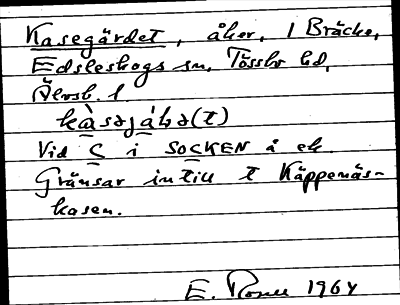 Kasegärdet, åker, 1 Bräcke,
Edsleskogs sn, Tössbo hd,
Älvsb. l.
kàsəjáḷə(t)
Vid C i SOCKEN å ek
Gränsar intill t Käppenäs-
kasen.
E. 1964